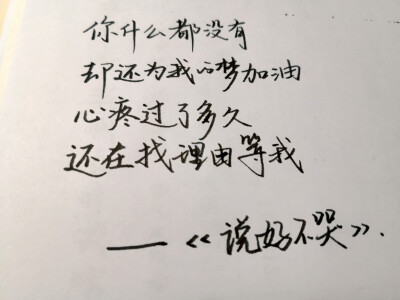 你什么都没有
却还为我的梦加油
心疼过了多久
还在找理由等我
——《说好不哭》.